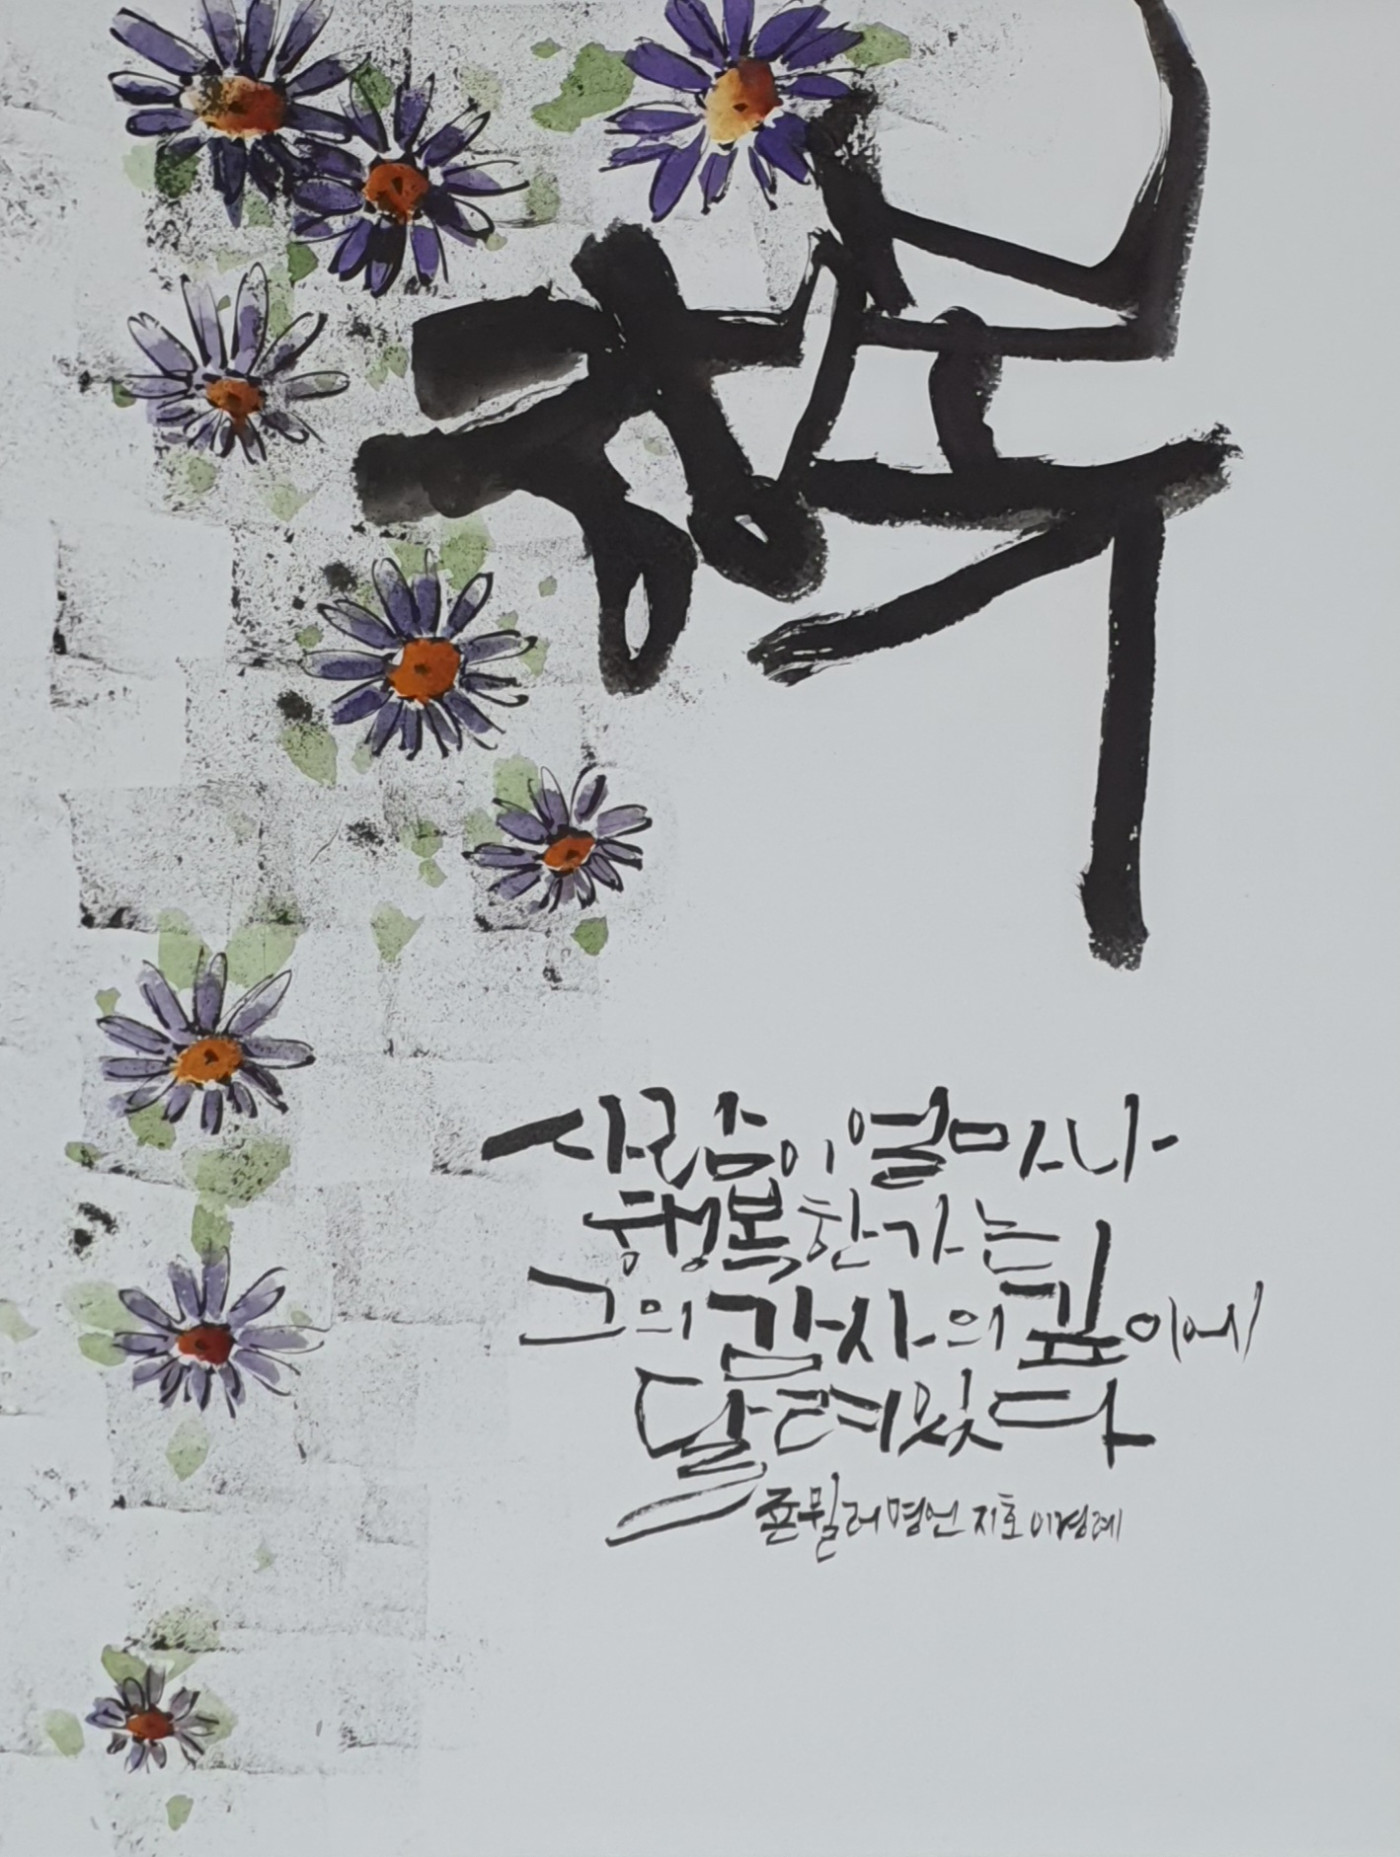 행복
사람이 얼마나
행복한가는
그의 감사의 깊이에
달려있다
존밀러 명언 지호 이경례